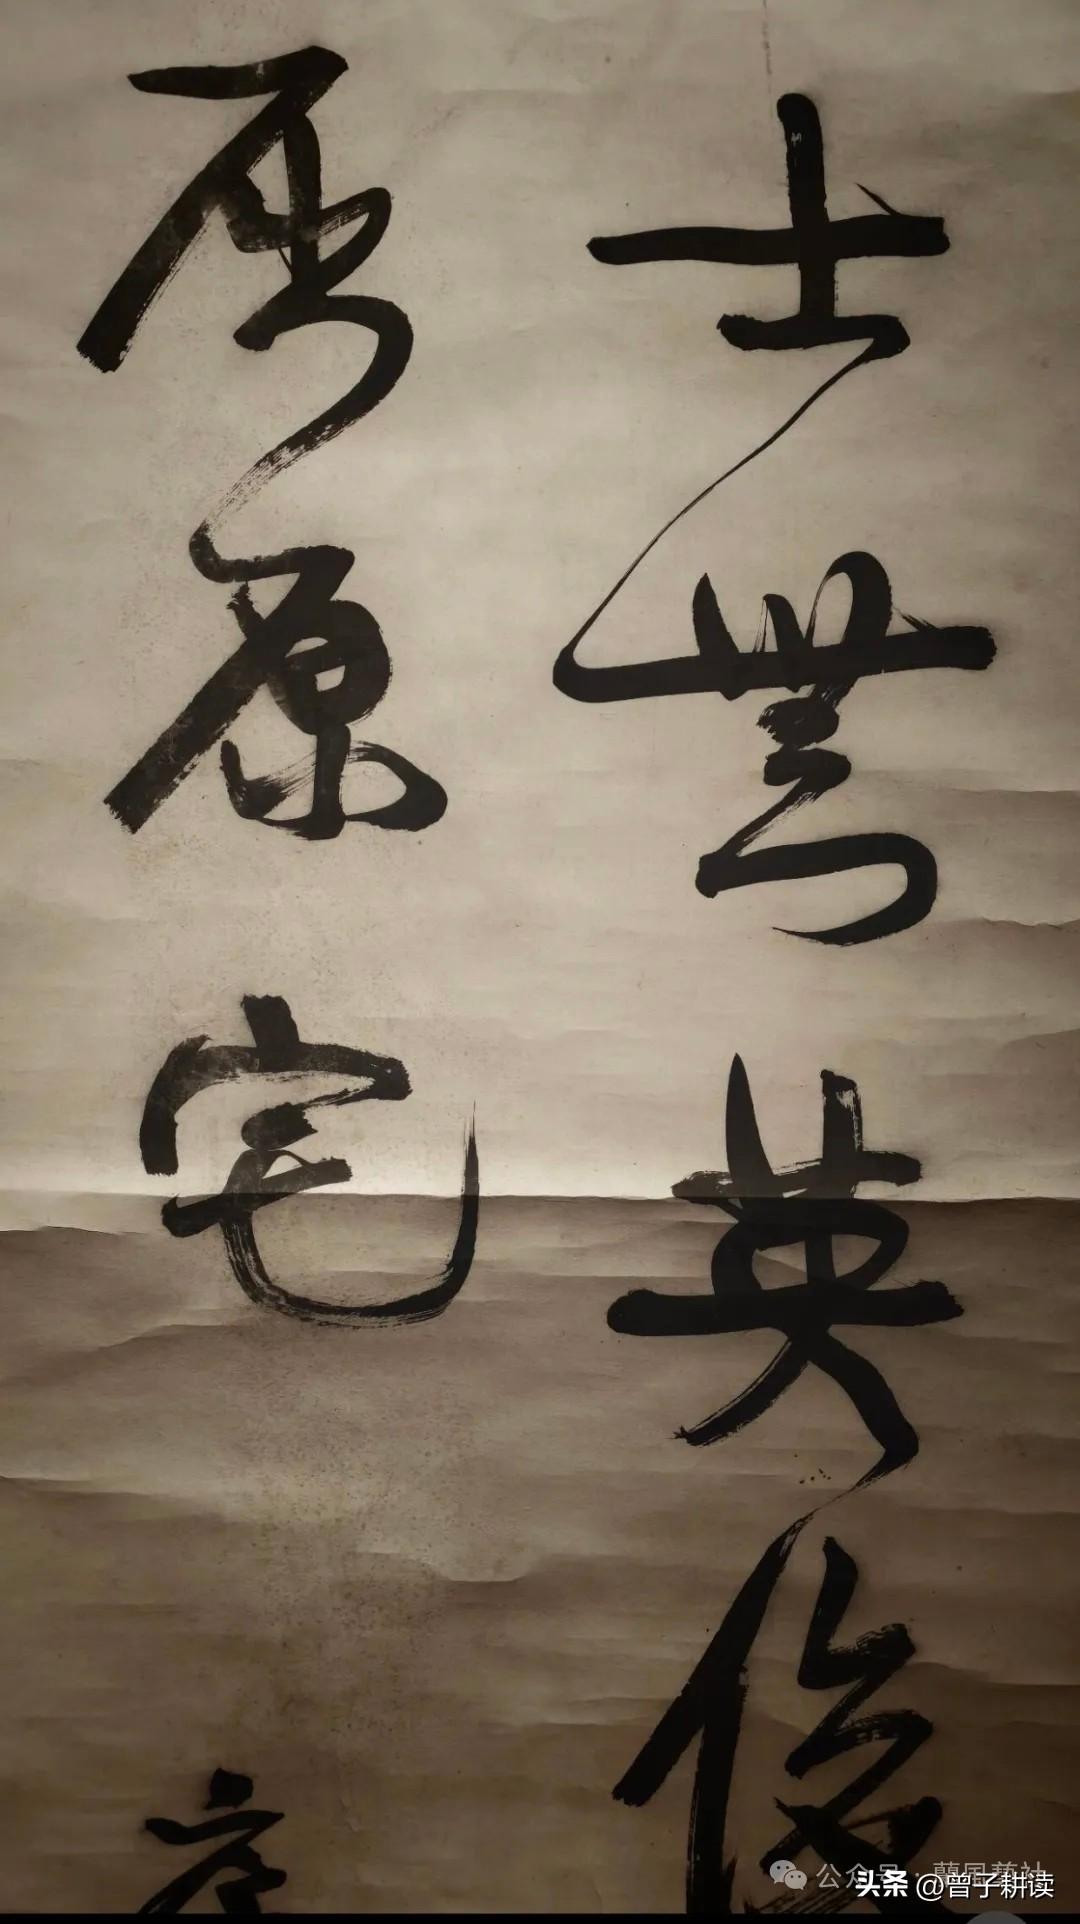 士無英俊
屈原宅
公众号
头条 @曾子耕读